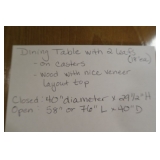 Dining Table with 2 Leafs
(18" ea)
- on casters
- wood with nice veneer
layout top
Closed 40" diameter x 29 3/4" H
Open 58" or 76" L x 40" D